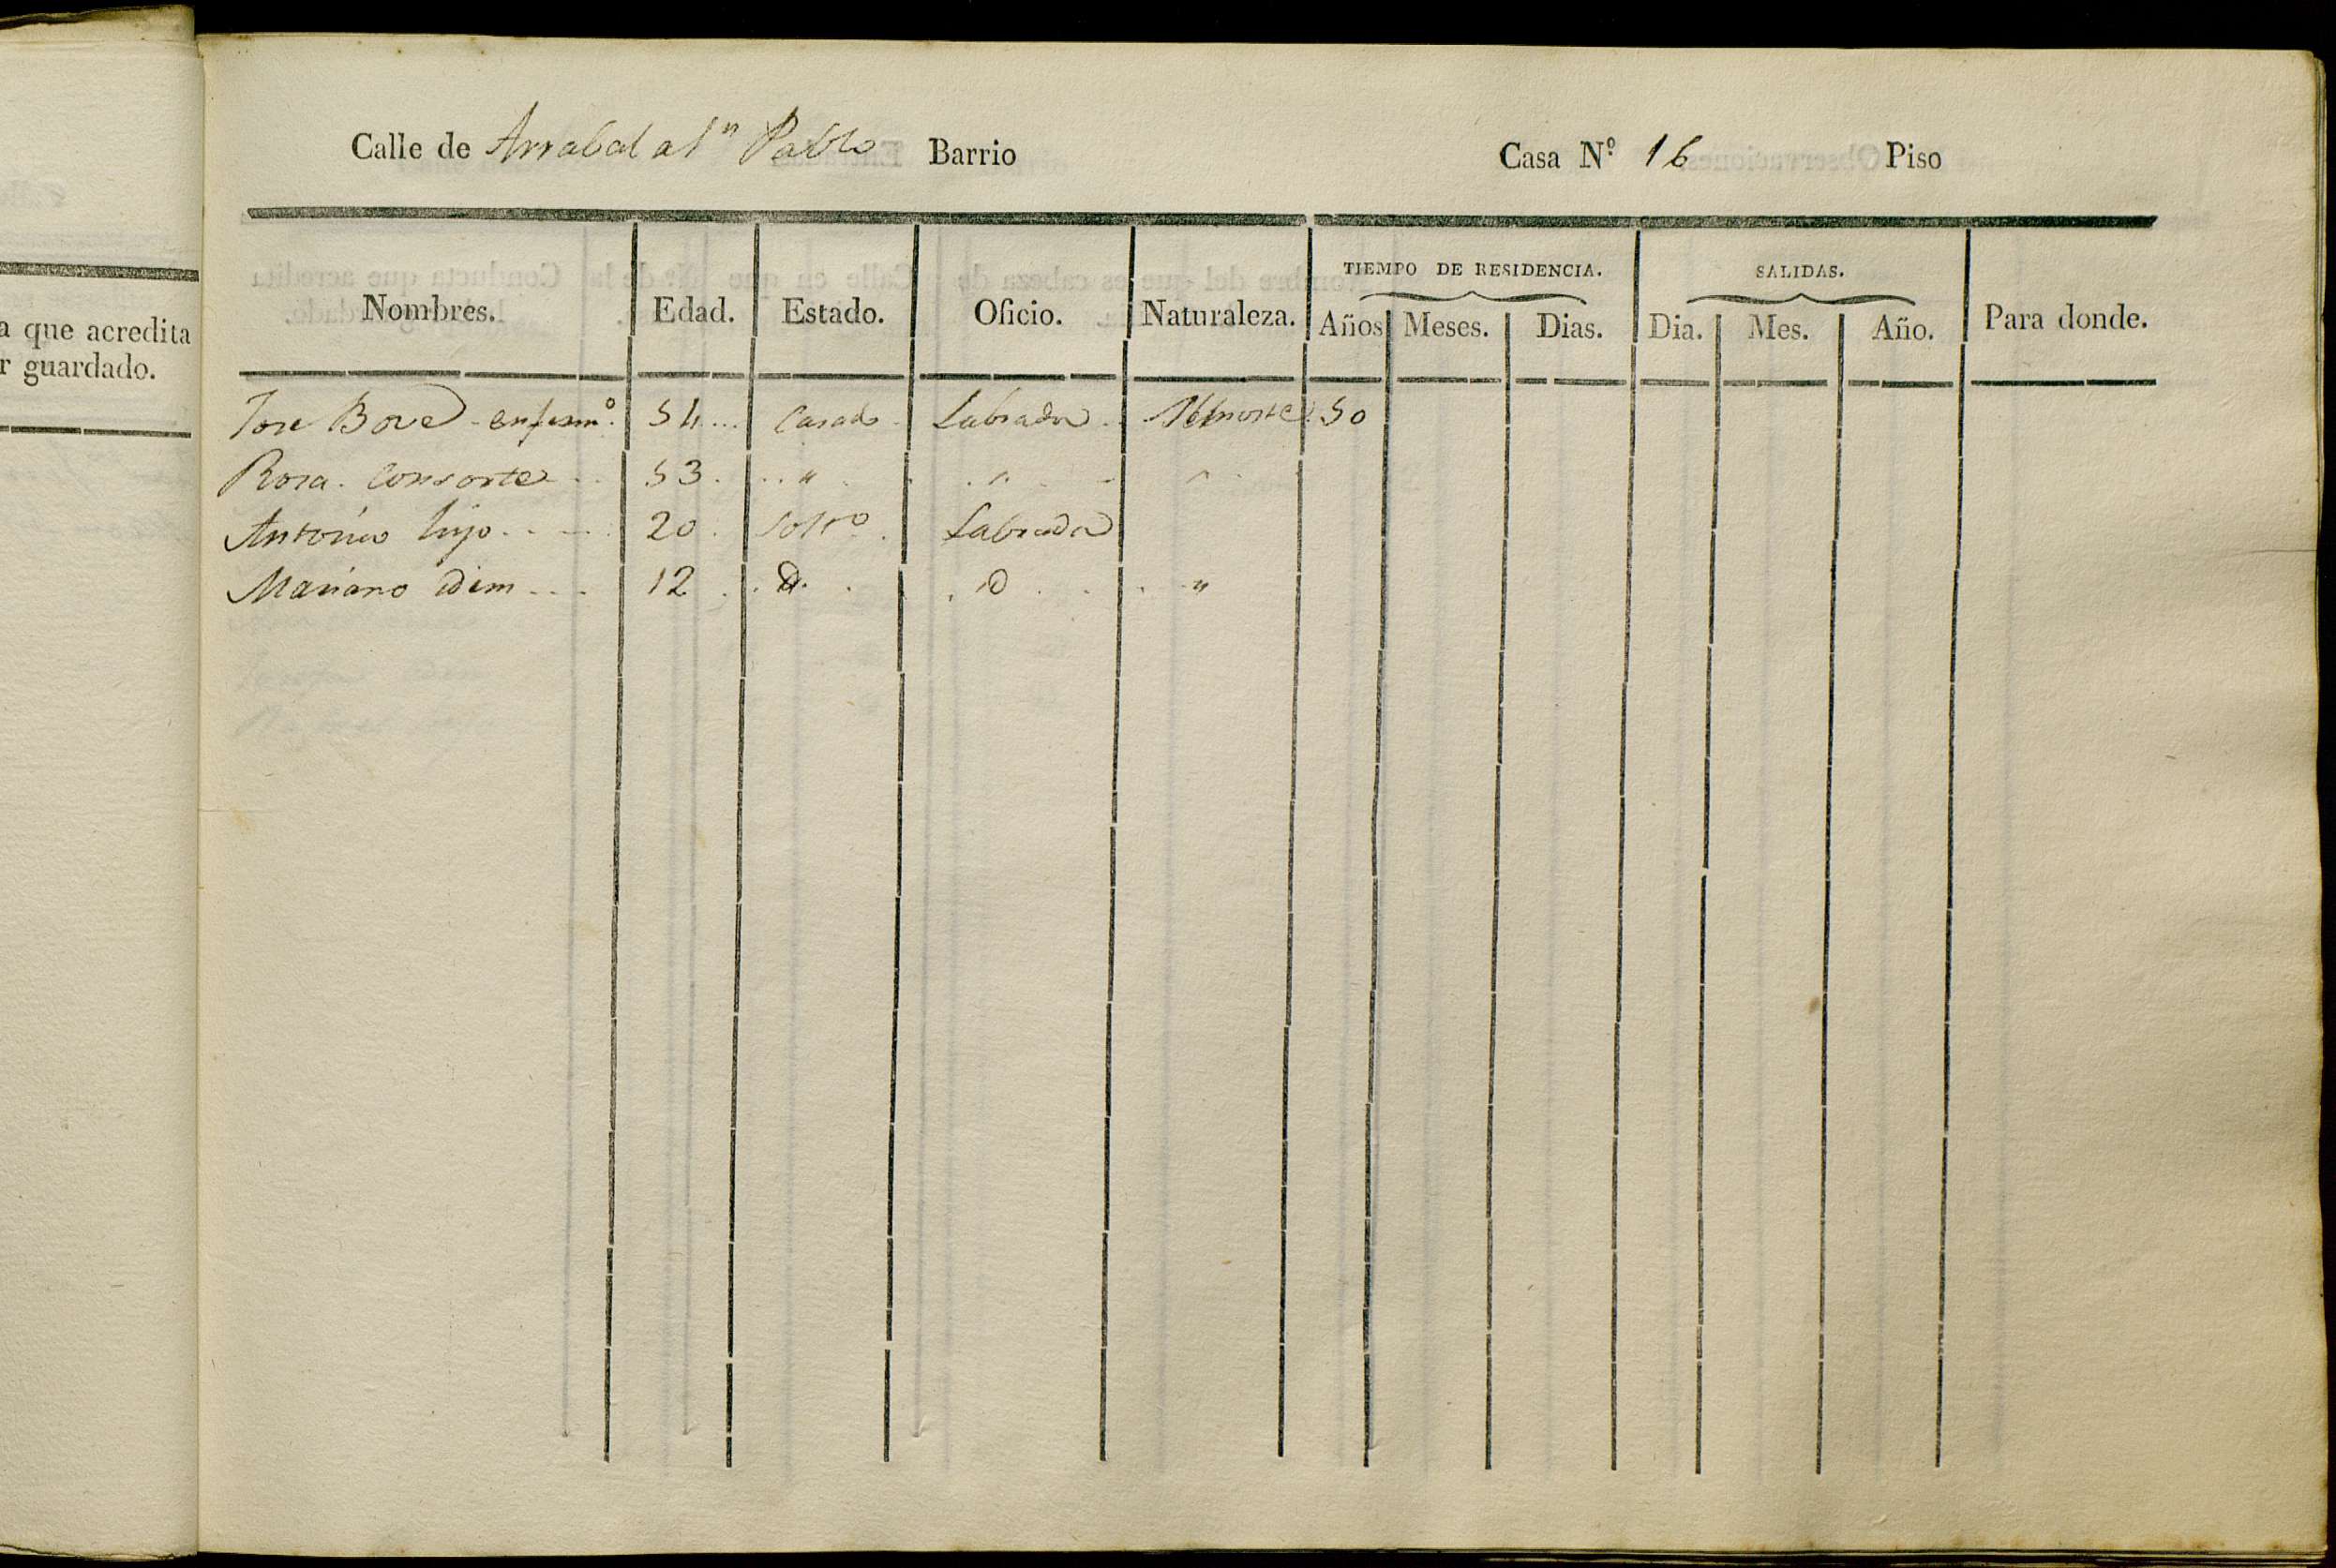 a que acredita
r guardado.
Calle de Arrabal a Sn Pablo Barrio Casa Nº 16 Piso
TIEMPO DE RESIDENCIA. SALIDAS.
Nombres. Edad. Estado. Oficio. Naturaleza. Años Meses. Dias. Dia. Mes. Año. Para donde.
Jose Bove - enfermº. 54... Casado. Labrador. 50
Rosa. Consorte .. 53. .. " . . " . - "
Antonio hijo. - - - . 20. Soltº. Labrador
Mariano idem - - . 12 . . D. . . D . . . "